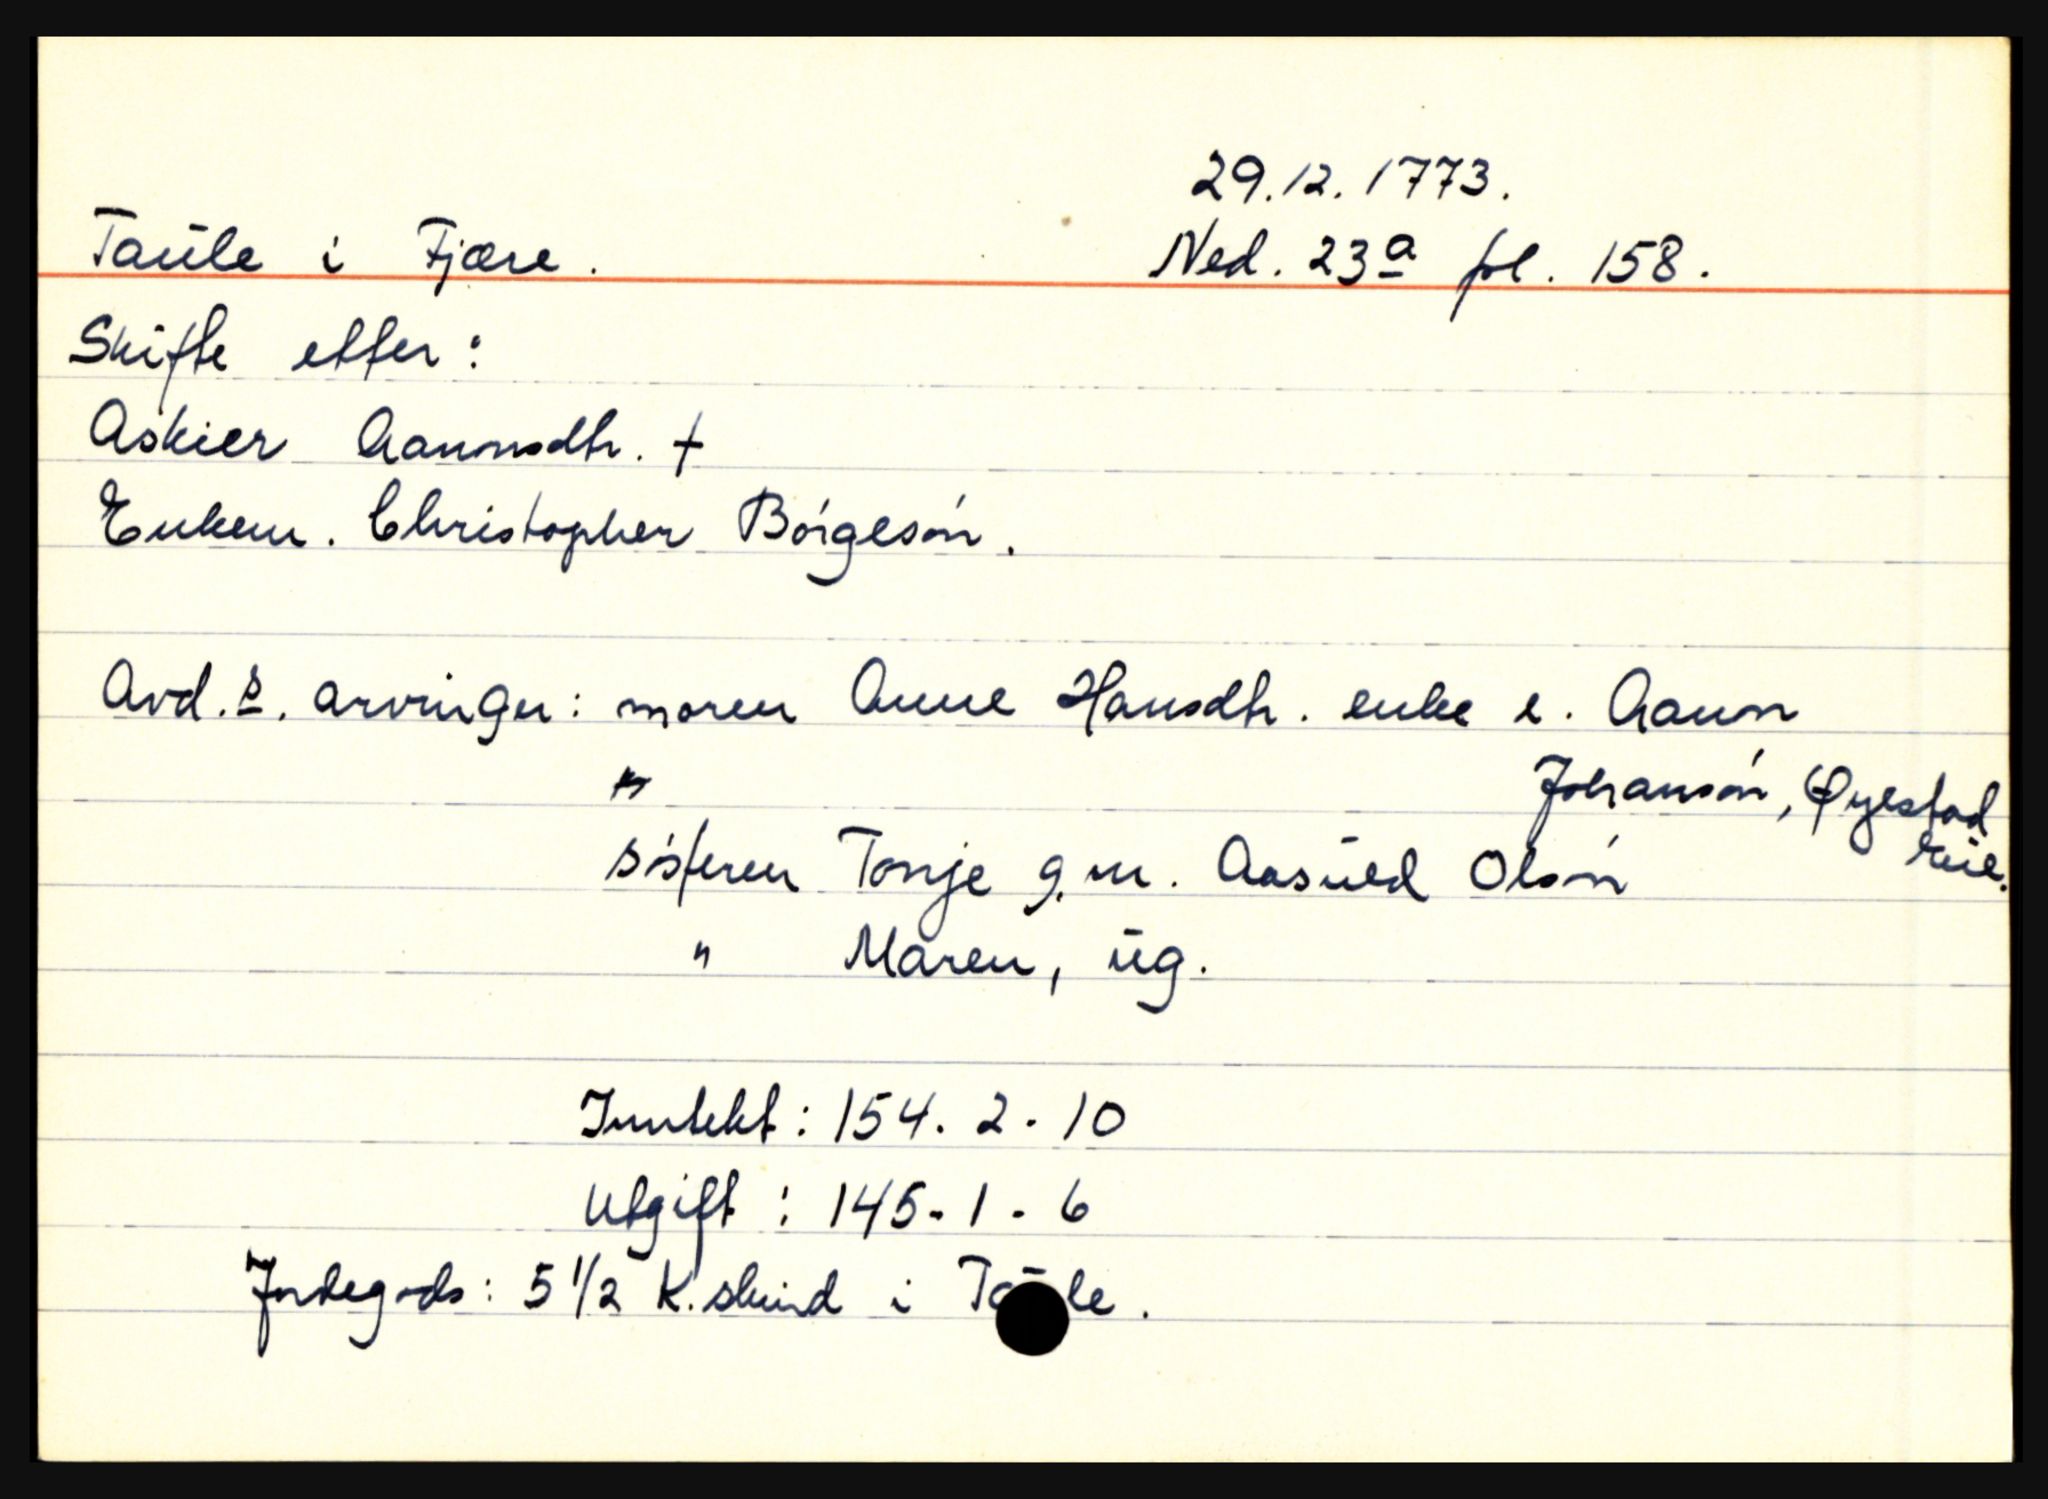 29.12.1773.
Taule i Fjære.
Ned. 23a fol. 158.
Skifte etter:
Askier Aanonsdtr. †
Enkem. Christopher Börgesön.
Avd.s. arvinger: moren Anne Hansdtr. enke e. Aanon
Johansön, Øyestad
sösteren Tonje g.m. Aasuld Olsön
" Maren, ug.
Inntekt: 154. 2. 10
Utgift: 145. 1. 6
Jordegods: 5 1/2 k.skind i Taule.